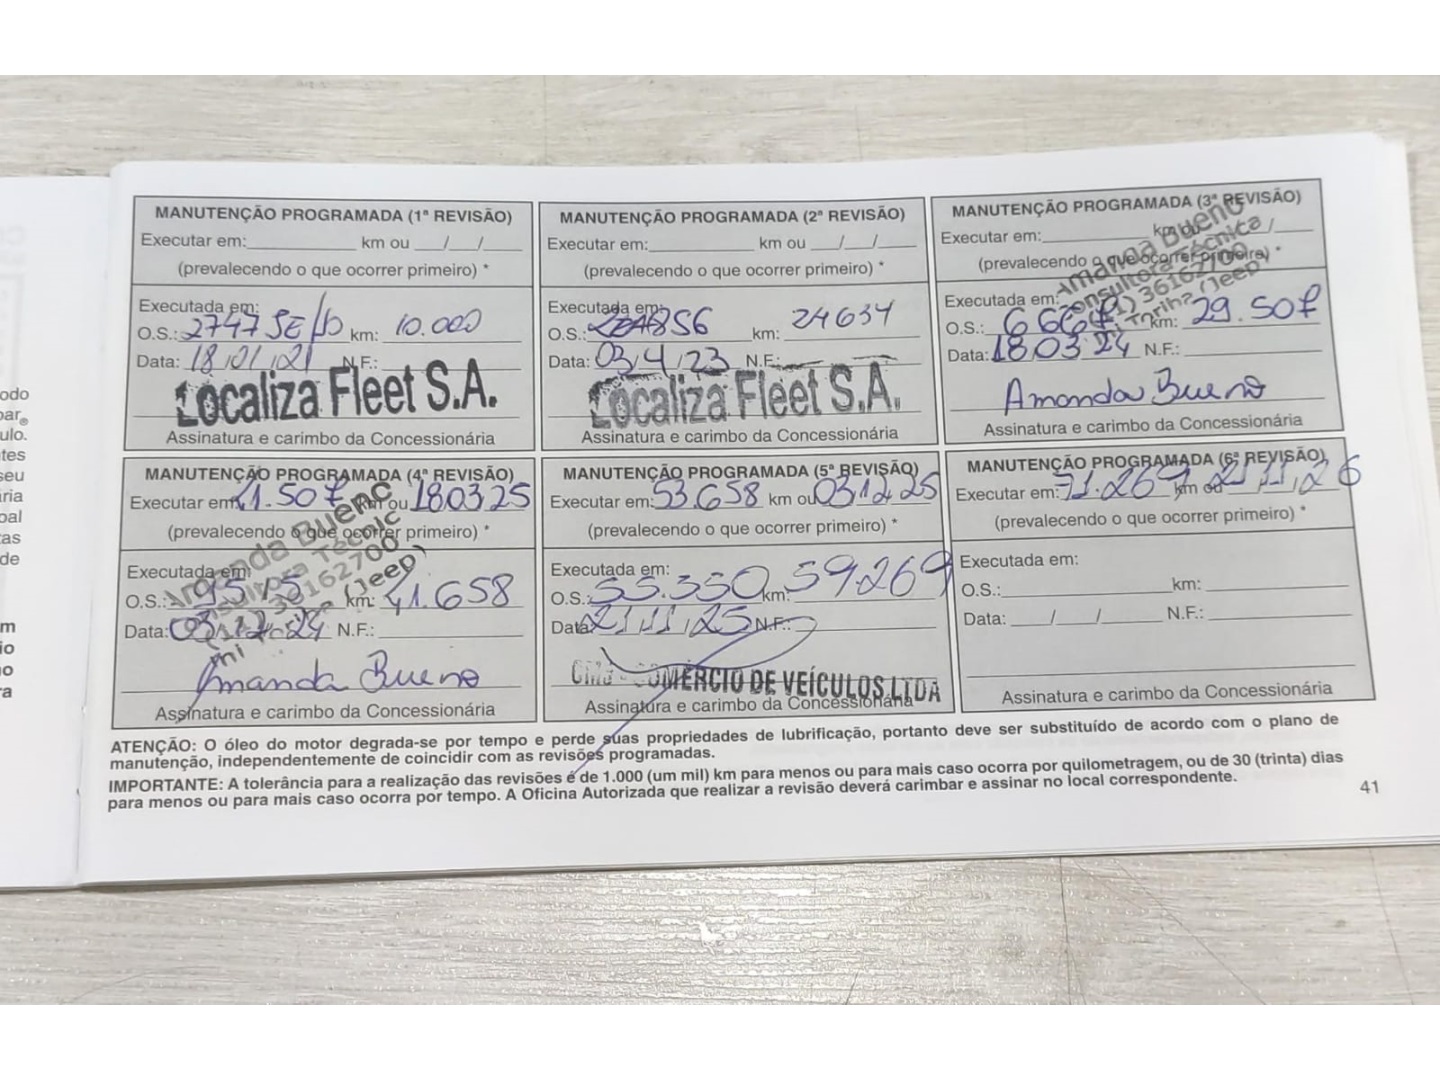 MANUTENÇÃO PROGRAMADA (1ª REVISÃO)
Executar em: km ou / /
(prevalecendo o que ocorrer primeiro) *
Executada em:
O.S.: km: 10.000
Data: 18/01/21 N.F.:
Localiza Fleet S.A.
Assinatura e carimbo da Concessionária
MANUTENÇÃO PROGRAMADA (2ª REVISÃO)
Executar em: km ou / /
(prevalecendo o que ocorrer primeiro) *
Executada em:
O.S.: km: 24634
Data: 03/4/23 N.F.:
Localiza Fleet S.A.
Assinatura e carimbo da Concessionária
MANUTENÇÃO PROGRAMADA (3ª REVISÃO)
Executar em: km ou /
(prevalecendo o que ocorrer primeiro) *
Amanda Bueno
Consultora Técnica
36162700
(Jeep)
Executada em:
O.S.: km: 29.507
Data: 18 03 24 N.F.:
Amanda Bueno
Assinatura e carimbo da Concessionária
MANUTENÇÃO PROGRAMADA (4ª REVISÃO)
Executar em: 41.507 km ou 18 03 25
(prevalecendo o que ocorrer primeiro) *
Amanda Bueno
36162700
(Jeep)
Executada em:
O.S.: km: 41.658
Data: 03/12/24 N.F.:
Amanda Bueno
Assinatura e carimbo da Concessionária
MANUTENÇÃO PROGRAMADA (5ª REVISÃO)
Executar em: 53.658 km ou 03 12 25
(prevalecendo o que ocorrer primeiro) *
Executada em:
O.S.: 55.350 km: 59.269
Data: 21/11/25 N.F.:
COMÉRCIO DE VEÍCULOS LTDA
Assinatura e carimbo da Concessionária
MANUTENÇÃO PROGRAMADA (6ª REVISÃO)
Executar em: 71.269 km ou 21/11/26
(prevalecendo o que ocorrer primeiro) *
Executada em:
O.S.: km:
Data: / / N.F.:
Assinatura e carimbo da Concessionária
ATENÇÃO: O óleo do motor degrada-se por tempo e perde suas propriedades de lubrificação, portanto deve ser substituído de acordo com o plano de
manutenção, independentemente de coincidir com as revisões programadas.
IMPORTANTE: A tolerância para a realização das revisões é de 1.000 (um mil) km para menos ou para mais caso ocorra por quilometragem, ou de 30 (trinta) dias
para menos ou para mais caso ocorra por tempo. A Oficina Autorizada que realizar a revisão deverá carimbar e assinar no local correspondente.
41